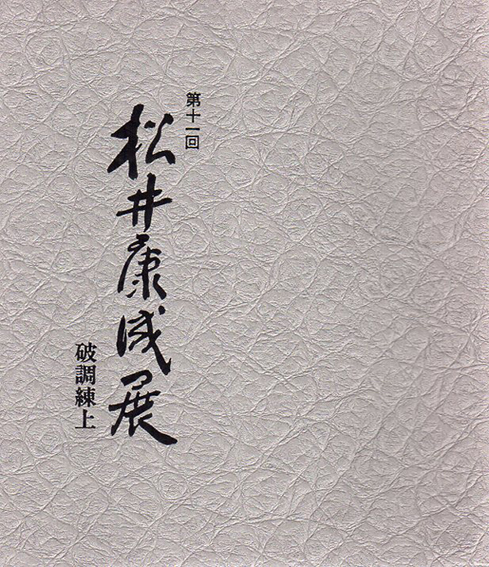 第十一回
松井康成展
破調練上